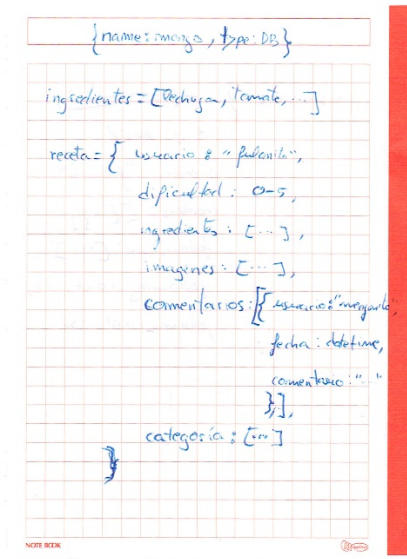 {name: mongo, type: DB}
ingredientes = [lechuga, tomate, ...]
receta = { usuario : "fulanito",
dificultad : 0-5,
ingredientes : [...],
imagenes : [...],
comentarios : [{ usuario : "menganito",
fecha : datetime,
comentario : "..."
},],
categoría : [...]
}
NOTE BOOK